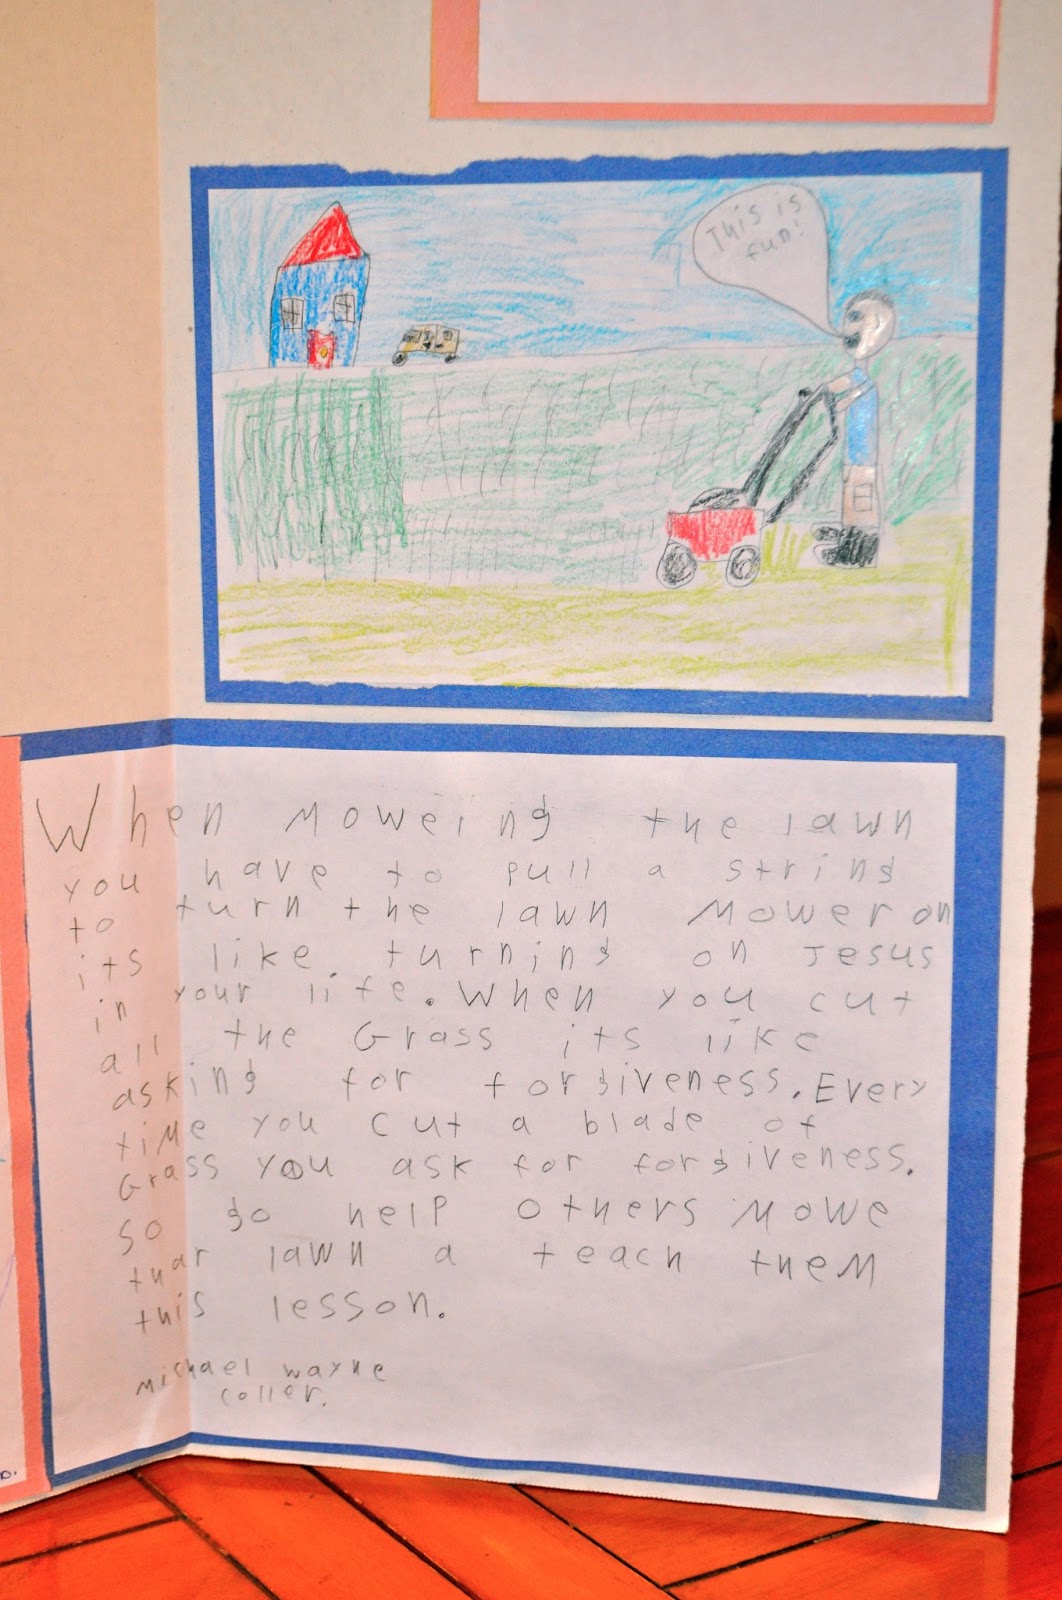 This is
fun!
When moweing the lawn
you have to pull a string
to turn the lawn mower on
its like turning on Jesus
in your life. When you cut
all the Grass its like
asking for forgiveness. Every
time you cut a blade of
Grass you ask for forgiveness.
so go help others mowe
thar lawn a teach them
this lesson.
michael wayne
coller.